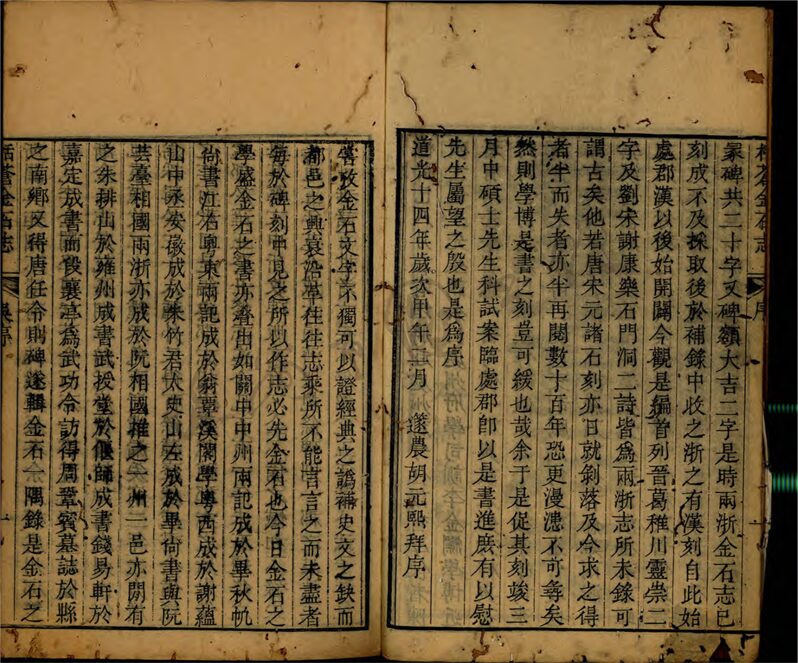 栝蒼金石志
序
冢碑共二十字又碑額大吉二字是時兩浙金石志已
刻成不及採取後於補錄中收之浙之有漢刻自此始
處郡漢以後始開闢今觀是編首列晉葛稚川靈崇二
字及劉宋謝康樂石門洞二詩皆爲兩浙志所未錄可
謂古矣他若唐宋元諸石刻亦日就剝落及今求之得
者半而失者亦半再閱數十百年恐更漫漶不可尋矣
然則學博是書之刻豈可緩也哉余于是促其刻竣三
月中碩士先生科試案臨處郡卽以是書進庶有以慰
先生屬望之殷也是爲序
道光十四年歲次甲午二月 遂農胡元熙拜序
嘗攷金石文字不獨可以證經典之譌補史文之缺而
都邑之興衰沿革往往志乘所不能言言之而未盡者
每於碑刻中見之所以作志必先金石也今日金石之
學盛金石之書亦叠出如關中中州兩記成於畢秋帆
尚書江右粵東兩記成於翁覃溪閣學粵西成於謝蘊
山中丞安徽成於朱竹君太史山左成於畢尚書與阮
芸臺相國兩浙亦成於阮相國推之一州一邑亦閒有
之朱排山於雍州成書武授堂於偃師成書錢易軒於
嘉定成書而段襄亭爲武功令訪得周鞏賓墓誌於縣
之南鄉又得唐任令則碑遂輯金石一隅錄是金石之
栝蒼金石志
吳序